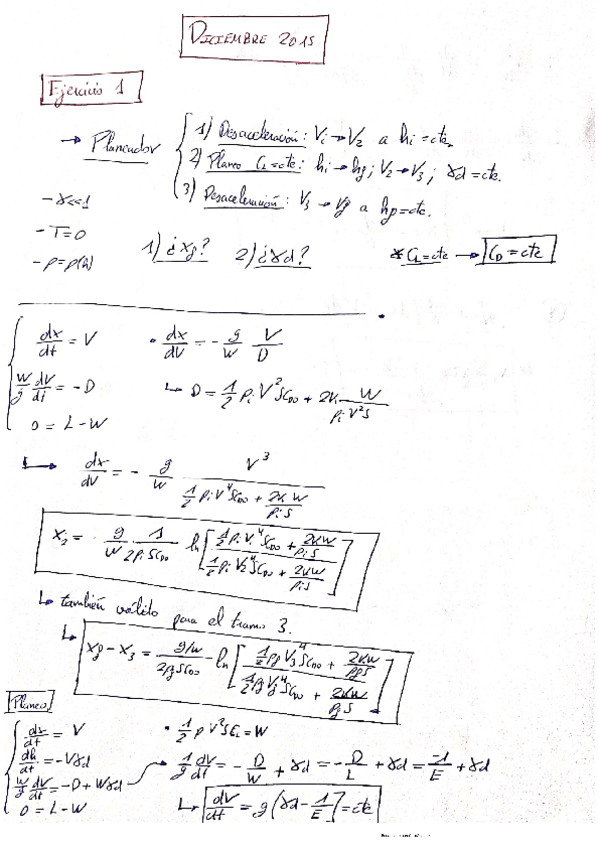 DICIEMBRE 2015
Ejercicio 1
→ Planeador { 1) Desaceleración: Vi → V2 a hi = cte.
2) Planeo CL = cte: hi → hf; V2 → V3; γd = cte.
3) Desaceleración: V3 → Vf a hf = cte.
- γ<<1
- T=0
- ρ=ρ(h)
1) ¿xf? 2) ¿γd? * CL = cte → CD = cte
dx/dt = V • dx/dV = - g/W V/D
W/g dV/dt = -D ↳ D = 1/2 ρi V²SCD0 + 2K W/ρiV²S
0 = L - W
↳ dx/dV = - g/W V³/(1/2 ρi V⁴SCD0 + 2KW/ρiS)
x2 = g/W 1/2ρiSCD0 ln[(1/2 ρi Vi⁴SCD0 + 2KW/ρiS)/(1/2 ρi V2⁴SCD0 + 2KW/ρiS)]
↳ también válido para el tramo 3.
↳ xf - x3 = g/W/2ρfSCD0 ln[(1/2 ρf V3⁴SCD0 + 2KW/ρfS)/(1/2 ρf Vf⁴SCD0 + 2KW/ρfS)]
Planeo
dx/dt = V • 1/2 ρ V²SCL = W
dh/dt = -Vγd
W/g dV/dt = -D + Wγd → 1/g dV/dt = - D/W + γd = - D/L + γd = -1/E + γd
0 = L - W ↳ dV/dt = g(γd - 1/E) = cte